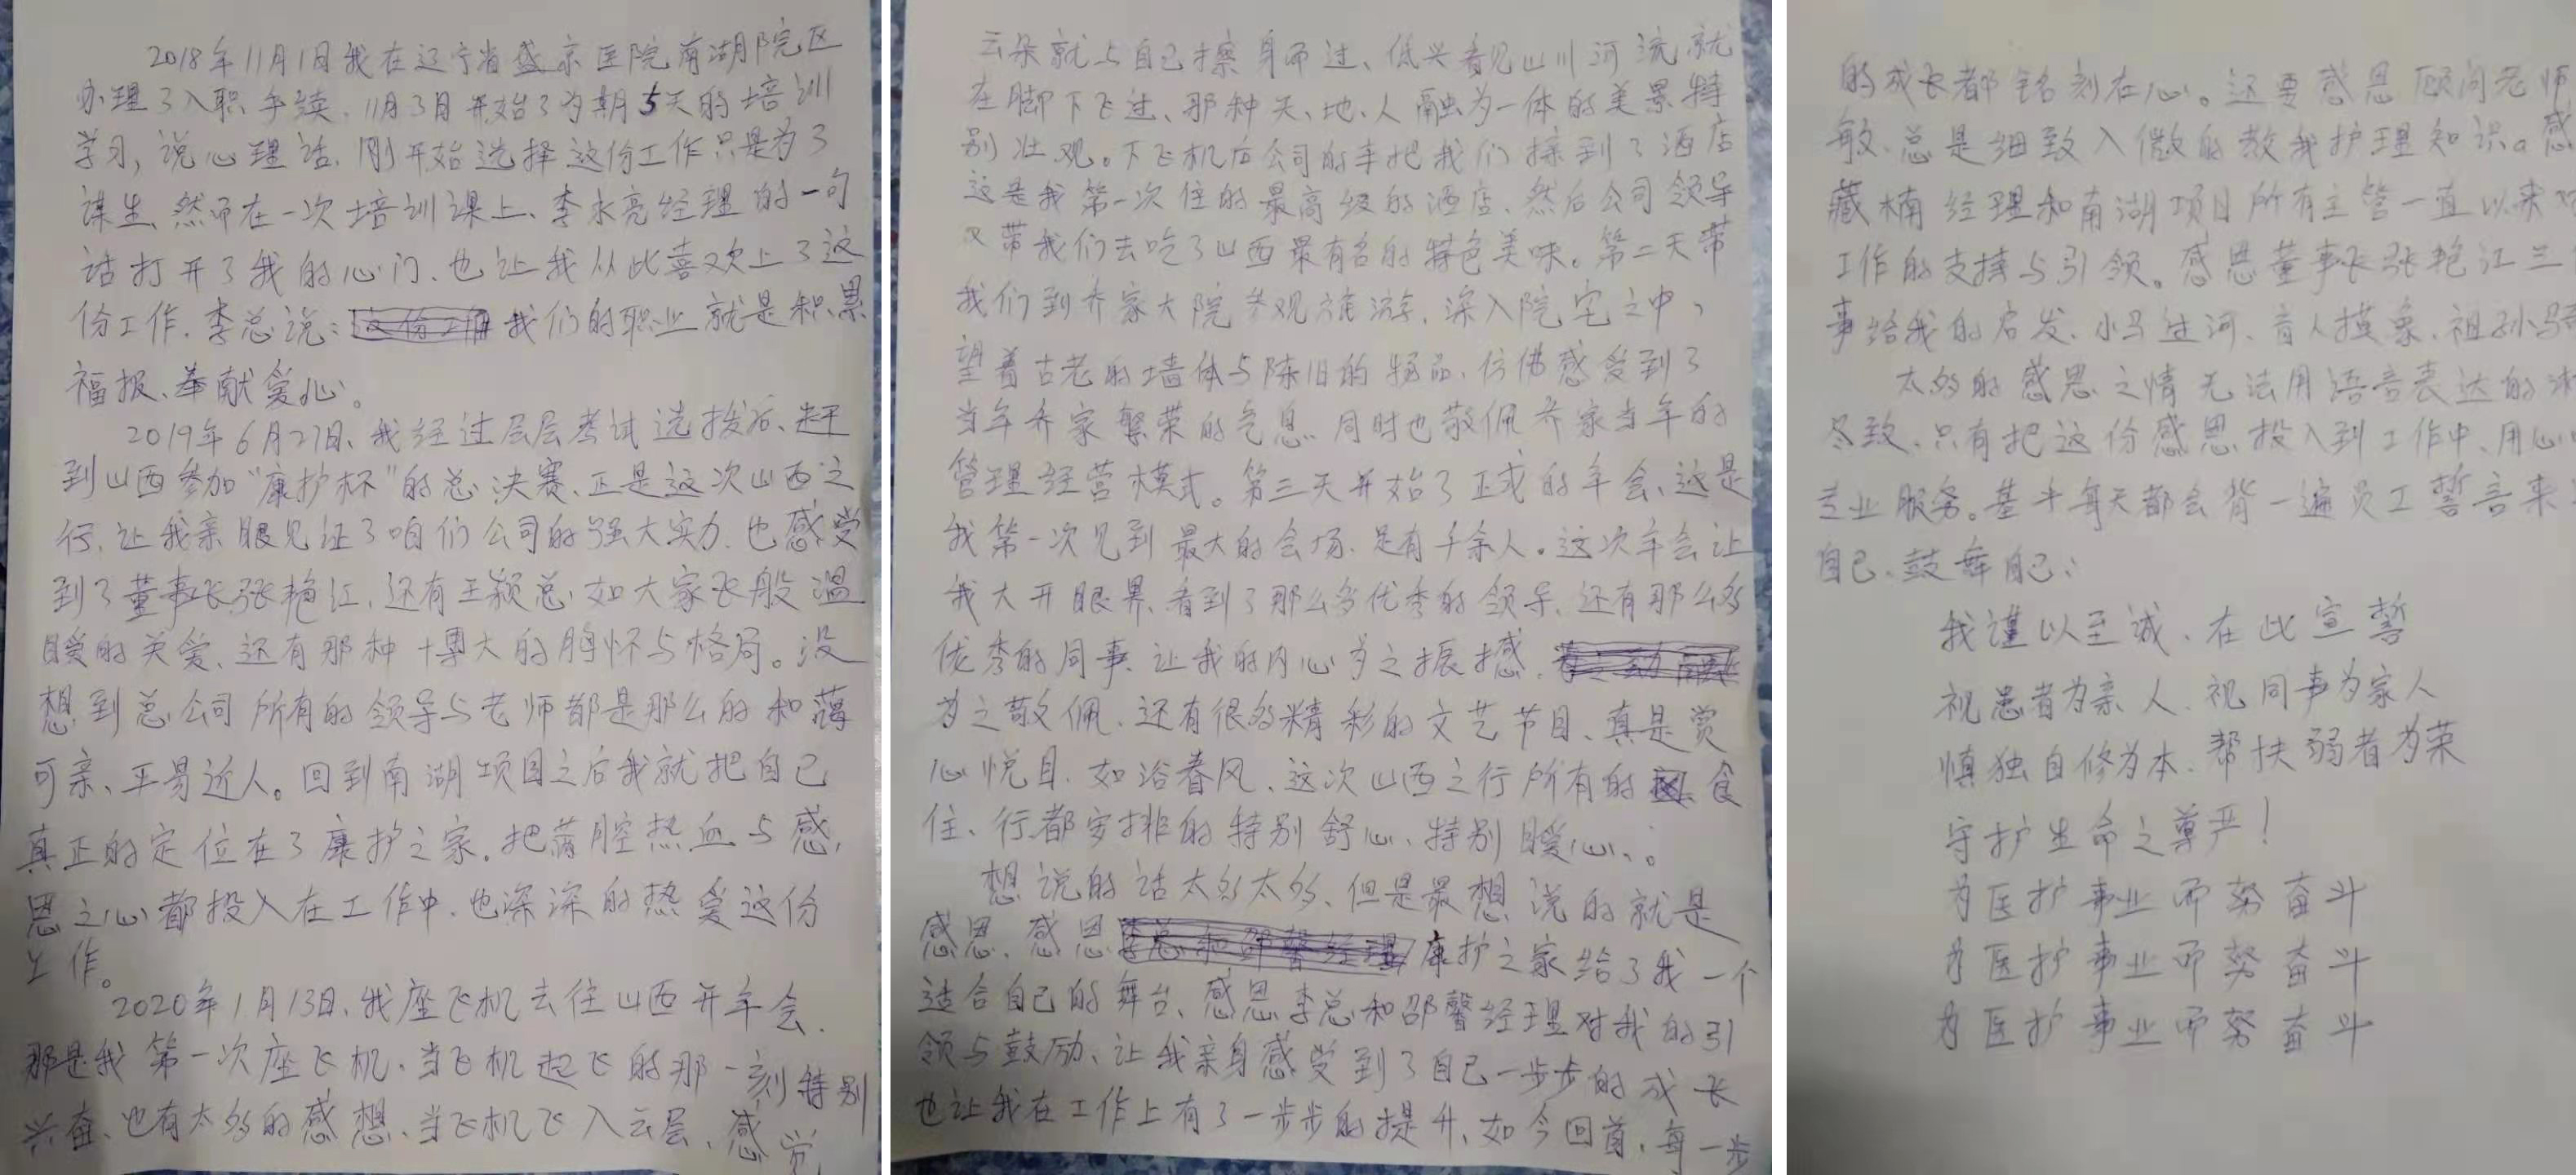 2018年11月1日我在辽宁省盛京医院南湖院区
办理了入职手续.11月3月开始了为期5天的培训
学习,说心理话.刚开始选择这份工作只是为了
谋生、然而在一次培训课上、李永亮经理的一句
话打开了我的心门、也让我从此喜欢上了这
份工作.李总说:我们的职业就是积累
福报、奉献爱心。
2019年6月27日、我经过层层考试选拨后、赶
到山西参加“康护杯”的总决赛、正是这次山西之
行.让我亲眼见证了咱们公司的强大实力.也感受
到了董事长张艳江,还有王颖总.如大家长般温
暖的关爱、还有那种博大的胸怀与格局。没
想到总公司所有的领导与老师都是那么的和蔼
可亲、平易近人。回到南湖项目之后我就把自己
真正的定位在了康护之家.把满腔热血与感
恩之心都投入在工作中.也深深的热爱这份
工作。
2020年1月13日、我座飞机去往山西开年会.
那是我第一次座飞机.当飞机起飞的那一刻特别
兴奋、也有太多的感想、当飞机飞入云层、感觉
云朵就与自己擦身而过、低头看见山川河流就
在脚下飞过、那种天、地、人融为一体的美景特
别壮观。下飞机后公司的车把我们接到了酒店
这是我第一次住的最高级的酒店、然后公司领导
又带我们去吃了山西最有名的特色美味。第二天带
我们到乔家大院参观旅游、深入院宅之中,
望着古老的墙体与陈旧的物品、仿佛感受到了
当年乔家繁荣的气息.同时也敬佩乔家当年的
管理经营模式。第三天开始了正式的年会、这是
我第一次见到最大的会场.足有千余人。这次年会让
我大开眼界、看到了那么多优秀的领导、还有那么多
优秀的同事.让我的内心为之振撼.
为之敬佩.还有很多精彩的文艺节目、真是赏
心悦目.如浴春风、这次山西之行所有的食
住、行都安排的特别舒心、特别暖心、。
想说的话太多太多、但是最想说的就是
感恩.感恩康护之家给了我一个
适合自己的舞台、感恩李总和邵馨经理对我的引
领与鼓励、让我亲身感受到了自己一步步的成长
也让我在工作上有了一步步的提升、如今回首.每一步
的成长都铭刻在心。还要感恩顾问老师
敏.总是细致入微的教我护理知识。感
藏楠经理和南湖项目所有主管一直以来对
工作的支持与引领。感恩董事长张艳江三
事给我的启发.小马过河、盲人摸象、祖孙骑
太多的感恩之情无法用语言表达的淋
尽致.只有把这份感恩投入到工作中、用心
专业服务。基本每天都会背一遍员工誓言来
自己、鼓舞自己:
我谨以至诚、在此宣誓
视患者为亲人.视同事为家人
慎独自修为本.帮扶弱者为荣
守护生命之尊严!
为医护事业而努奋斗
为医护事业而努奋斗
为医护事业而努奋斗